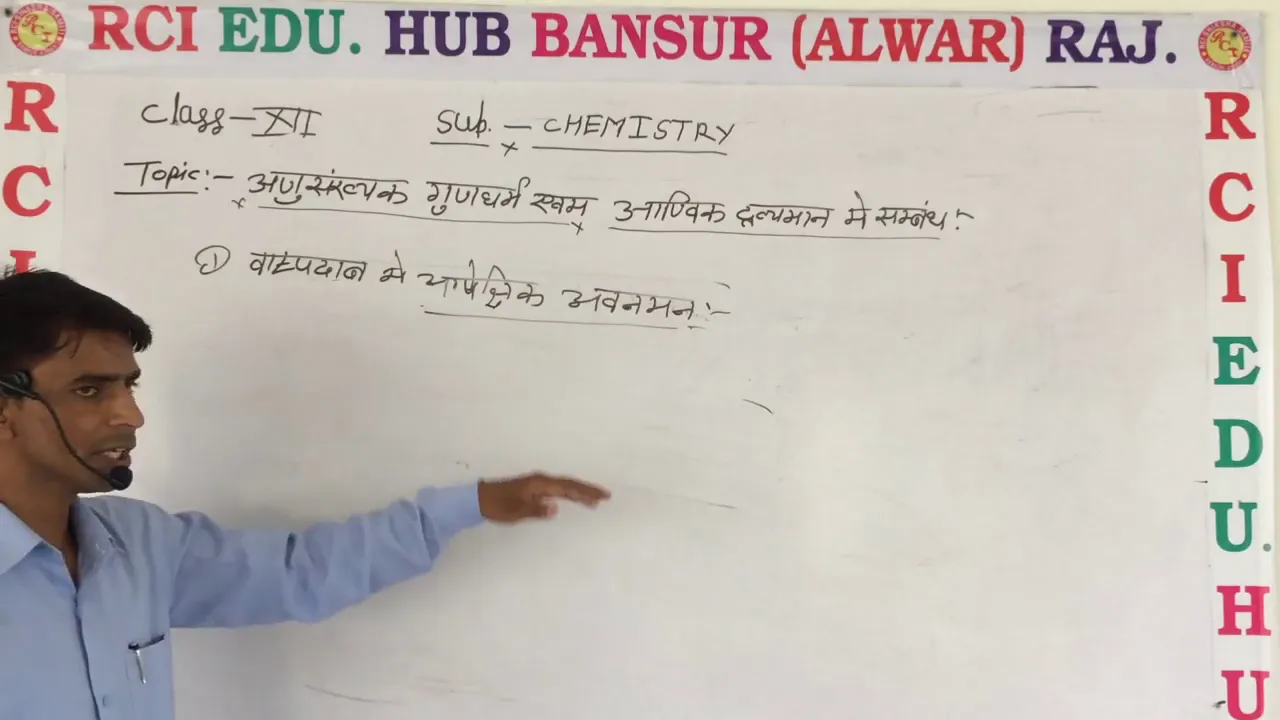 RCI EDU. HUB BANSUR (ALWAR) RAJ.
Class - XII Sub. - CHEMISTRY
Topic :- अणुसंख्यक गुणधर्म एवम आण्विक द्रव्यमान मे सम्बंध :-
① वाष्पदाब मे आपेक्षिक अवनमन :-
R
C
I
R
C
I
E
D
U.
H
U